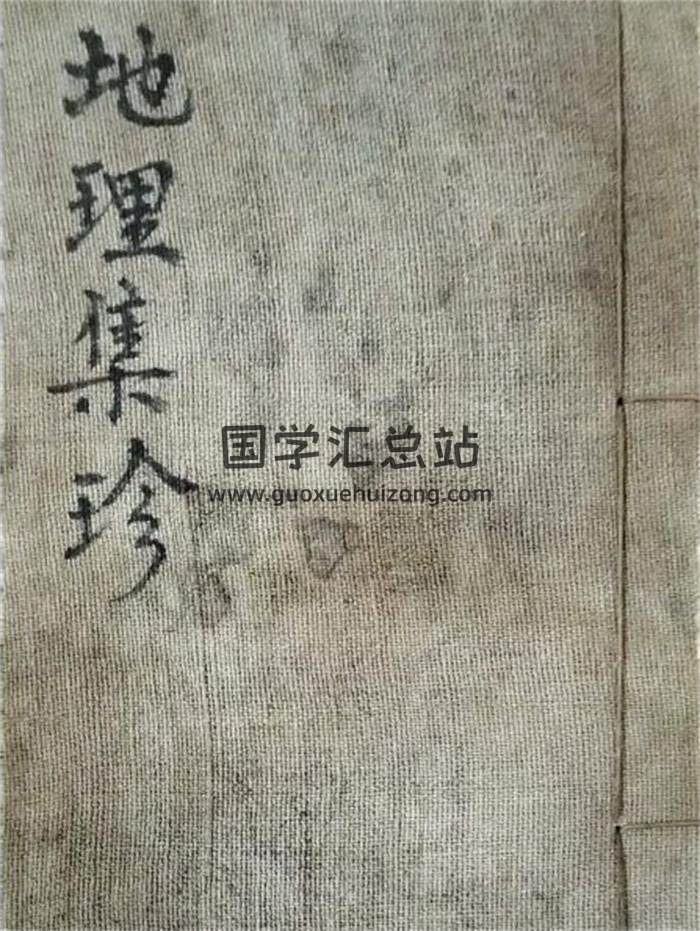 地理集珍
国学汇总站
www.guoxuehuizong.com